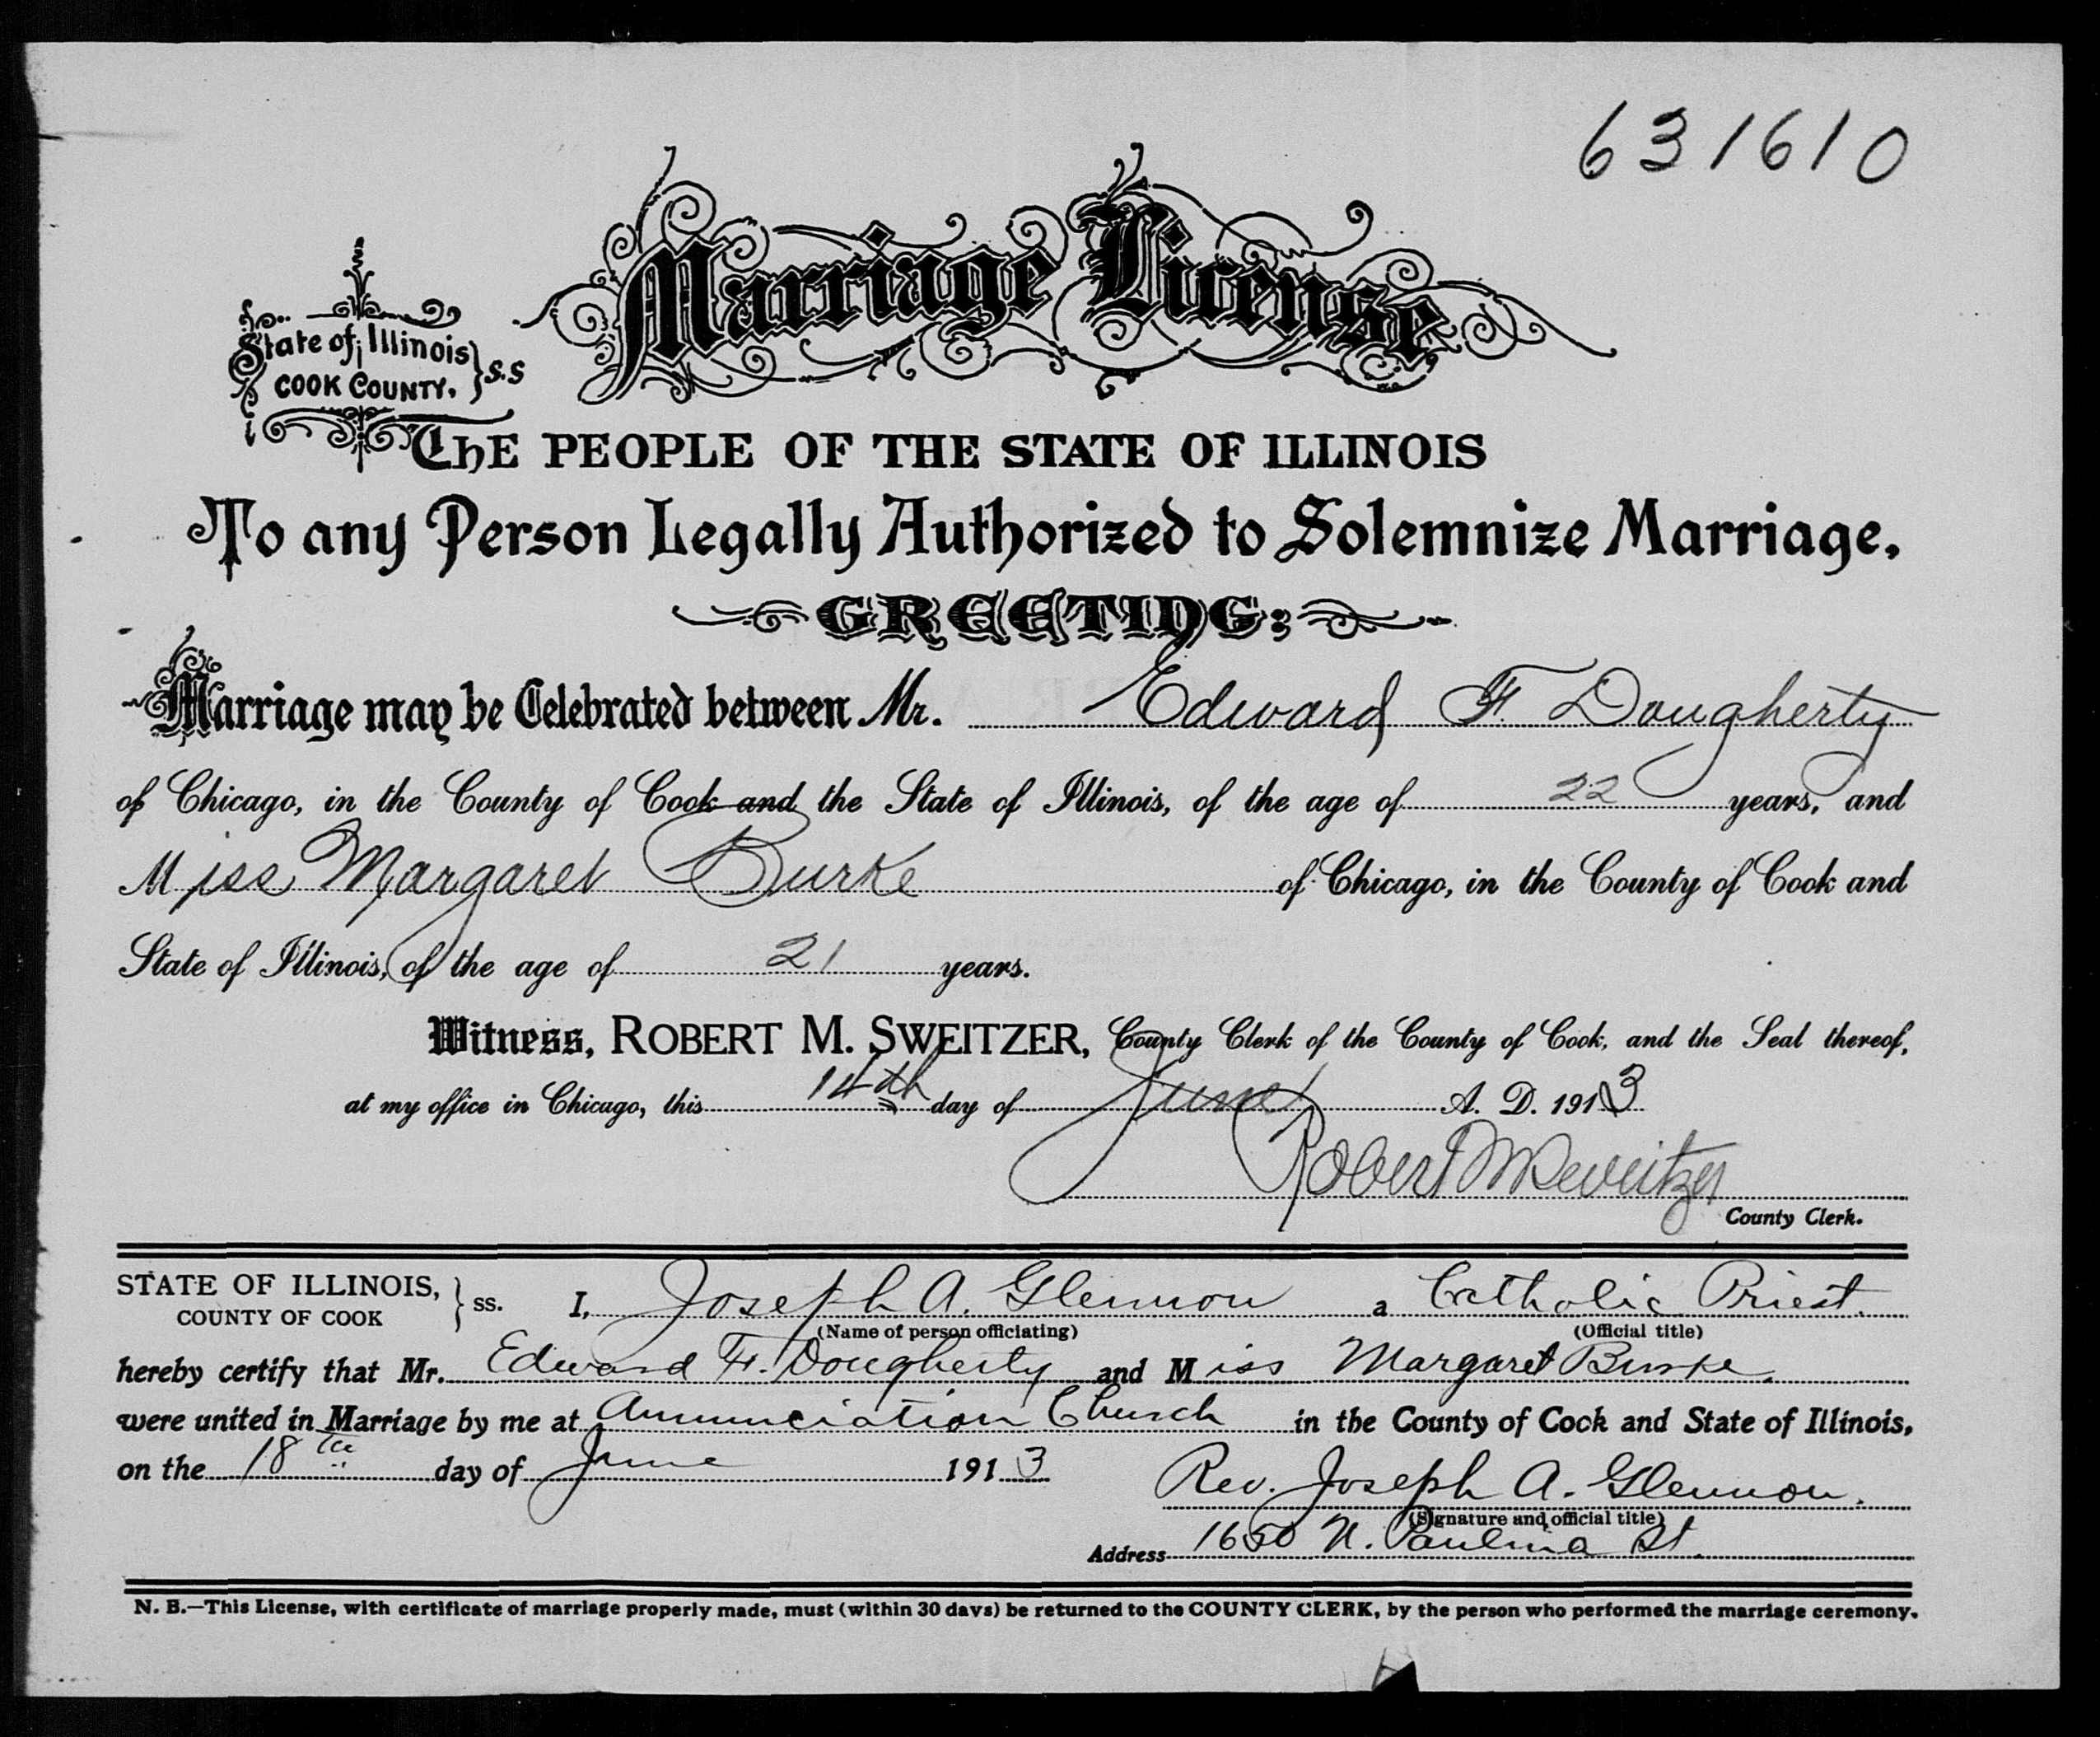 631610
Marriage License
State of Illinois
COOK COUNTY. } S.S
The PEOPLE OF THE STATE OF ILLINOIS
To any Person Legally Authorized to Solemnize Marriage,
GREETING:
Marriage may be Celebrated between Mr. Edward F. Dougherty
of Chicago, in the County of Cook and the State of Illinois, of the age of 22 years, and
Miss Margaret Burke of Chicago, in the County of Cook and
State of Illinois, of the age of 21 years.
Witness, ROBERT M. SWEITZER, County Clerk of the County of Cook, and the Seal thereof,
at my office in Chicago, this 14th day of June A. D. 1913
Robert M Sweitzer
County Clerk.
STATE OF ILLINOIS,
COUNTY OF COOK } ss. I, Joseph A. Glennon a Catholic Priest.
(Name of person officiating) (Official title)
hereby certify that Mr. Edward F. Dougherty and Miss Margaret Burke.
were united in Marriage by me at Annunciation Church in the County of Cook and State of Illinois,
on the 18th day of June 1913
Rev. Joseph A. Glennon.
(Signature and official title)
Address 1650 N. Paulina St.
N. B.—This License, with certificate of marriage properly made, must (within 30 days) be returned to the COUNTY CLERK, by the person who performed the marriage ceremony.